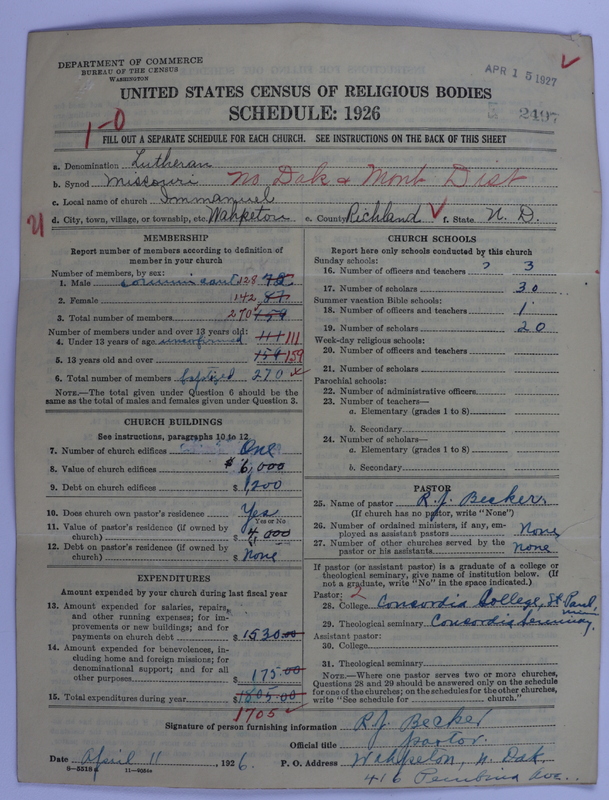 DEPARTMENT OF COMMERCE
BUREAU OF THE CENSUS
WASHINGTON
APR 15 1927
UNITED STATES CENSUS OF RELIGIOUS BODIES
SCHEDULE: 1926
2497
1-0
FILL OUT A SEPARATE SCHEDULE FOR EACH CHURCH. SEE INSTRUCTIONS ON THE BACK OF THIS SHEET
a. Denomination Lutheran
b. Synod Missouri No Dak & Mont Dist
c. Local name of church Immanuel
d. City, town, village, or township, etc. Wahpeton e. County Richland f. State N. D.
MEMBERSHIP
Report number of members according to definition of
member in your church
Number of members, by sex:
1. Male communicant 128 72
2. Female 142 87
3. Total number of members 270 159
Number of members under and over 13 years old:
4. Under 13 years of age unconfirmed 111 111
5. 13 years old and over 159 159
6. Total number of members baptized 270
NOTE.—The total given under Question 6 should be the
same as the total of males and females given under Question 3.
CHURCH BUILDINGS
See instructions, paragraphs 10 to 12
7. Number of church edifices One
8. Value of church edifices $ 6,000
9. Debt on church edifices $ 1,200
10. Does church own pastor's residence Yes
Yes or No
11. Value of pastor's residence (if owned by
church) $ 4,000
12. Debt on pastor's residence (if owned by
church) $ None
EXPENDITURES
Amount expended by your church during last fiscal year
13. Amount expended for salaries, repairs,
and other running expenses; for im-
provements or new buildings; and for
payments on church debt $ 1530.00
14. Amount expended for benevolences, in-
cluding home and foreign missions; for
denominational support; and for all
other purposes $ 175.00
15. Total expenditures during year $ 1805.00
1705
CHURCH SCHOOLS
Report here only schools conducted by this church
Sunday schools:
16. Number of officers and teachers ? 3
17. Number of scholars 30
Summer vacation Bible schools:
18. Number of officers and teachers 1
19. Number of scholars 20
Week-day religious schools:
20. Number of officers and teachers
21. Number of scholars
Parochial schools:
22. Number of administrative officers
23. Number of teachers—
a. Elementary (grades 1 to 8)
b. Secondary
24. Number of scholars—
a. Elementary (grades 1 to 8)
b. Secondary
PASTOR
25. Name of pastor R. J. Becker
(If church has no pastor, write "None")
26. Number of ordained ministers, if any, em-
ployed as assistant pastors None
27. Number of other churches served by the
pastor or his assistants none
If pastor (or assistant pastor) is a graduate of a college or
theological seminary, give name of institution below. (If
not a graduate, write "No" in the space indicated.)
Pastor: 2
28. College Concordia College, St Paul, Minn.
29. Theological seminary Concordia Seminary
Assistant pastor:
30. College
31. Theological seminary
NOTE.—Where one pastor serves two or more churches,
Questions 28 and 29 should be answered only on the schedule
for one of the churches; on the schedules for the other churches,
write "See schedule for church."
Signature of person furnishing information R. J. Becker
Official title pastor
Date April 11, 1926. P. O. Address Wahpeton, N. Dak.
416 Pembina Ave.